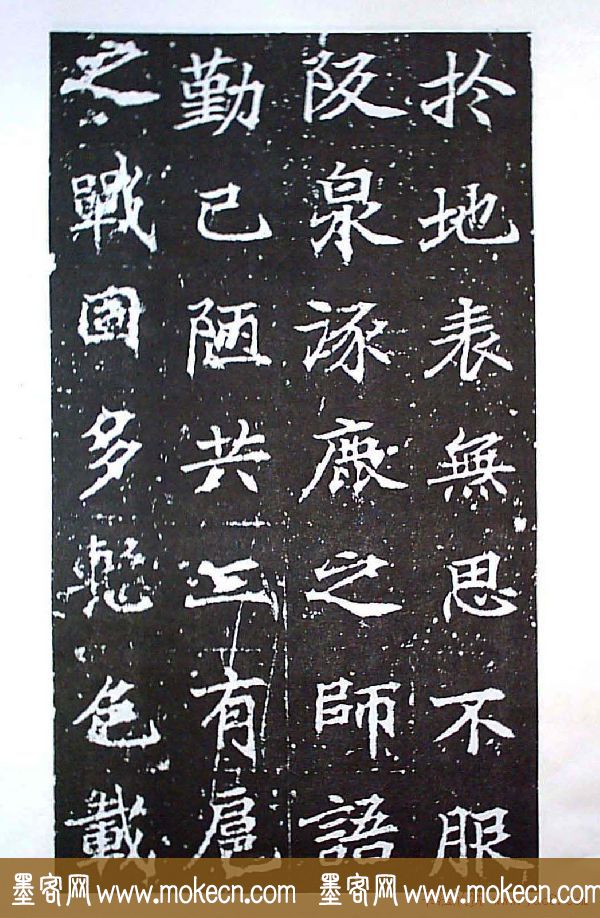 扵地表無思不服
阪泉涿鹿之師語
勤己陋共工有扈
之戰固多慙色載
墨客网 www.mokecn.com 墨客网 www.mokecn.com